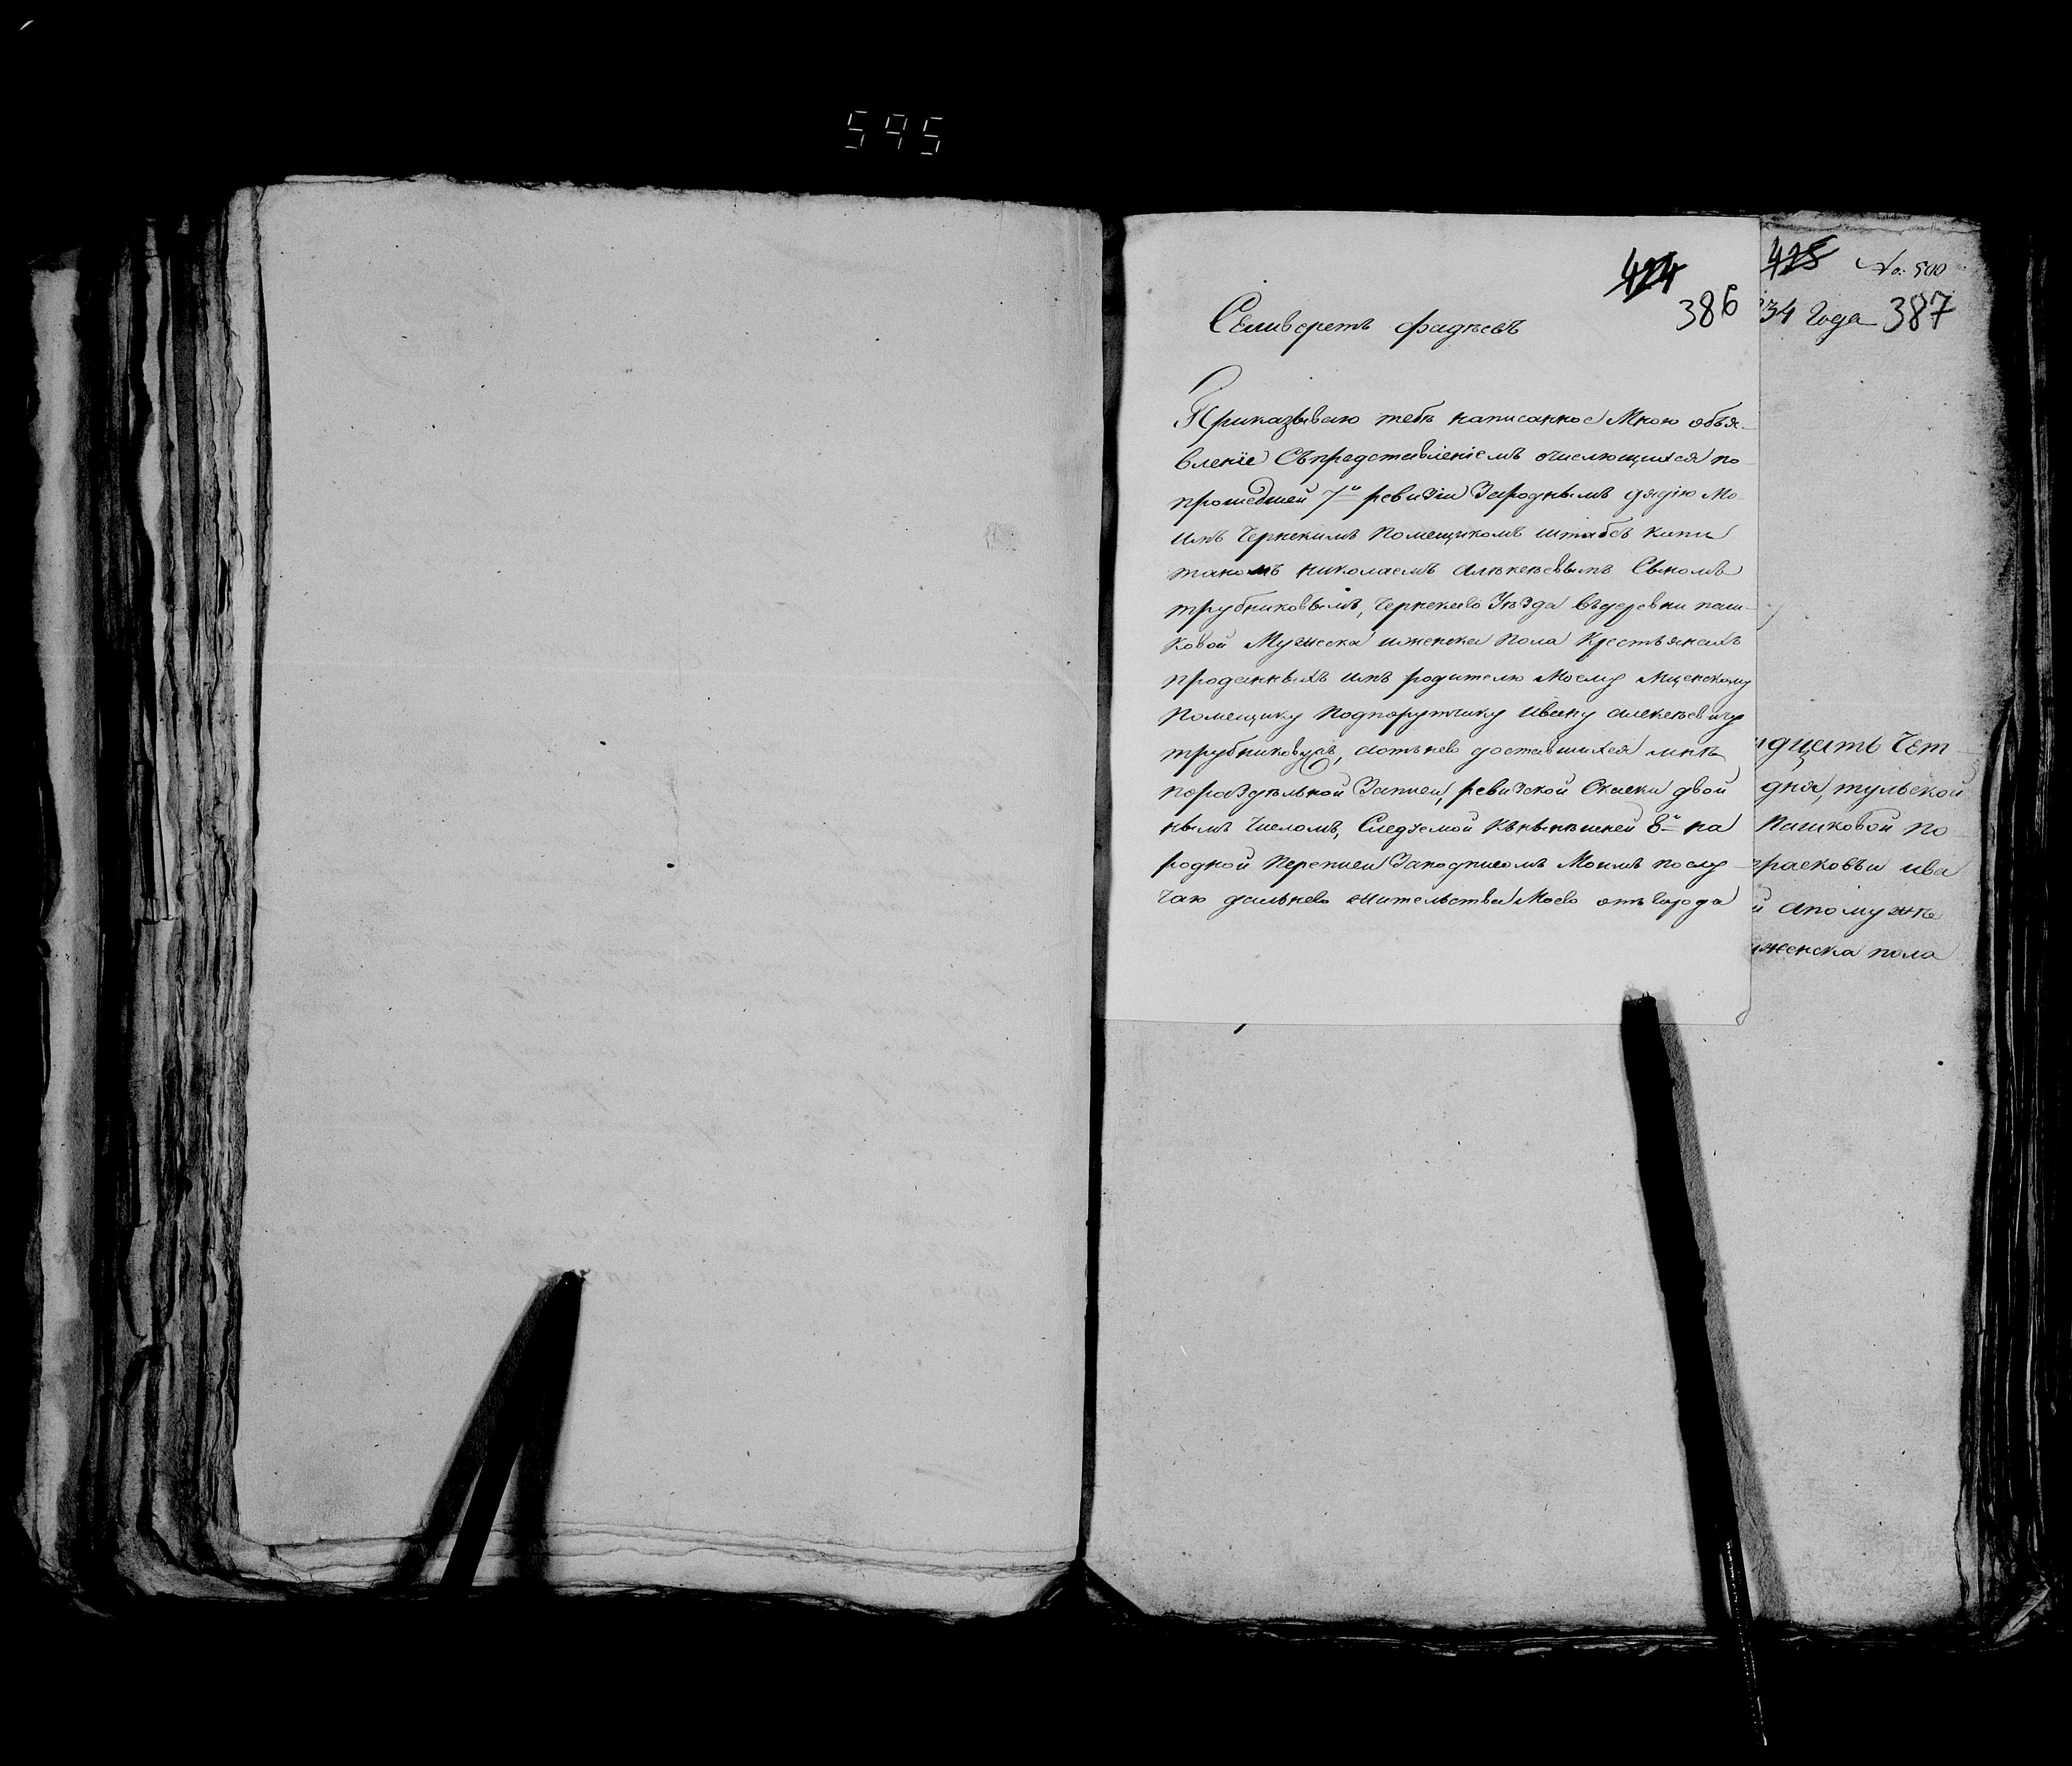 595
424
386
Селиверстъ фадѣевъ
Приказываю тебѣ написанное Мною объя-
вленіе Съпредставленіемъ очислющихся по
прошедшей 7й ревизіи Зароднымъ дядію Мо
имъ Чернскимъ Помещикомъ штабсъ капи
таномъ николаемъ алѣкѣевымъ Сыномъ
трубниковымъ, Чернскаго Уѣзда въдеревни паш-
ковой Мужеска иженска пола Крестьянахъ
проданныхъ имъ родителю Моему Мценскому
Помещику Подпорутчику Ивану алексѣевичу
трубникову, аотънево доставшихся мнѣ
пораздѣльной Записи, ревизской Скаски двой
нымъ Числомъ, Следуемой Кънынѣшней 8й на
родной Переписи Заподписомъ Моимъ послу-
чаю дальнево жительства Моево отъ города
425 No: 500
34 Года 387
дцать Чет-
дня, тульской
Пашковой по-
расковьи ива
й апомужѣ
иженска пола